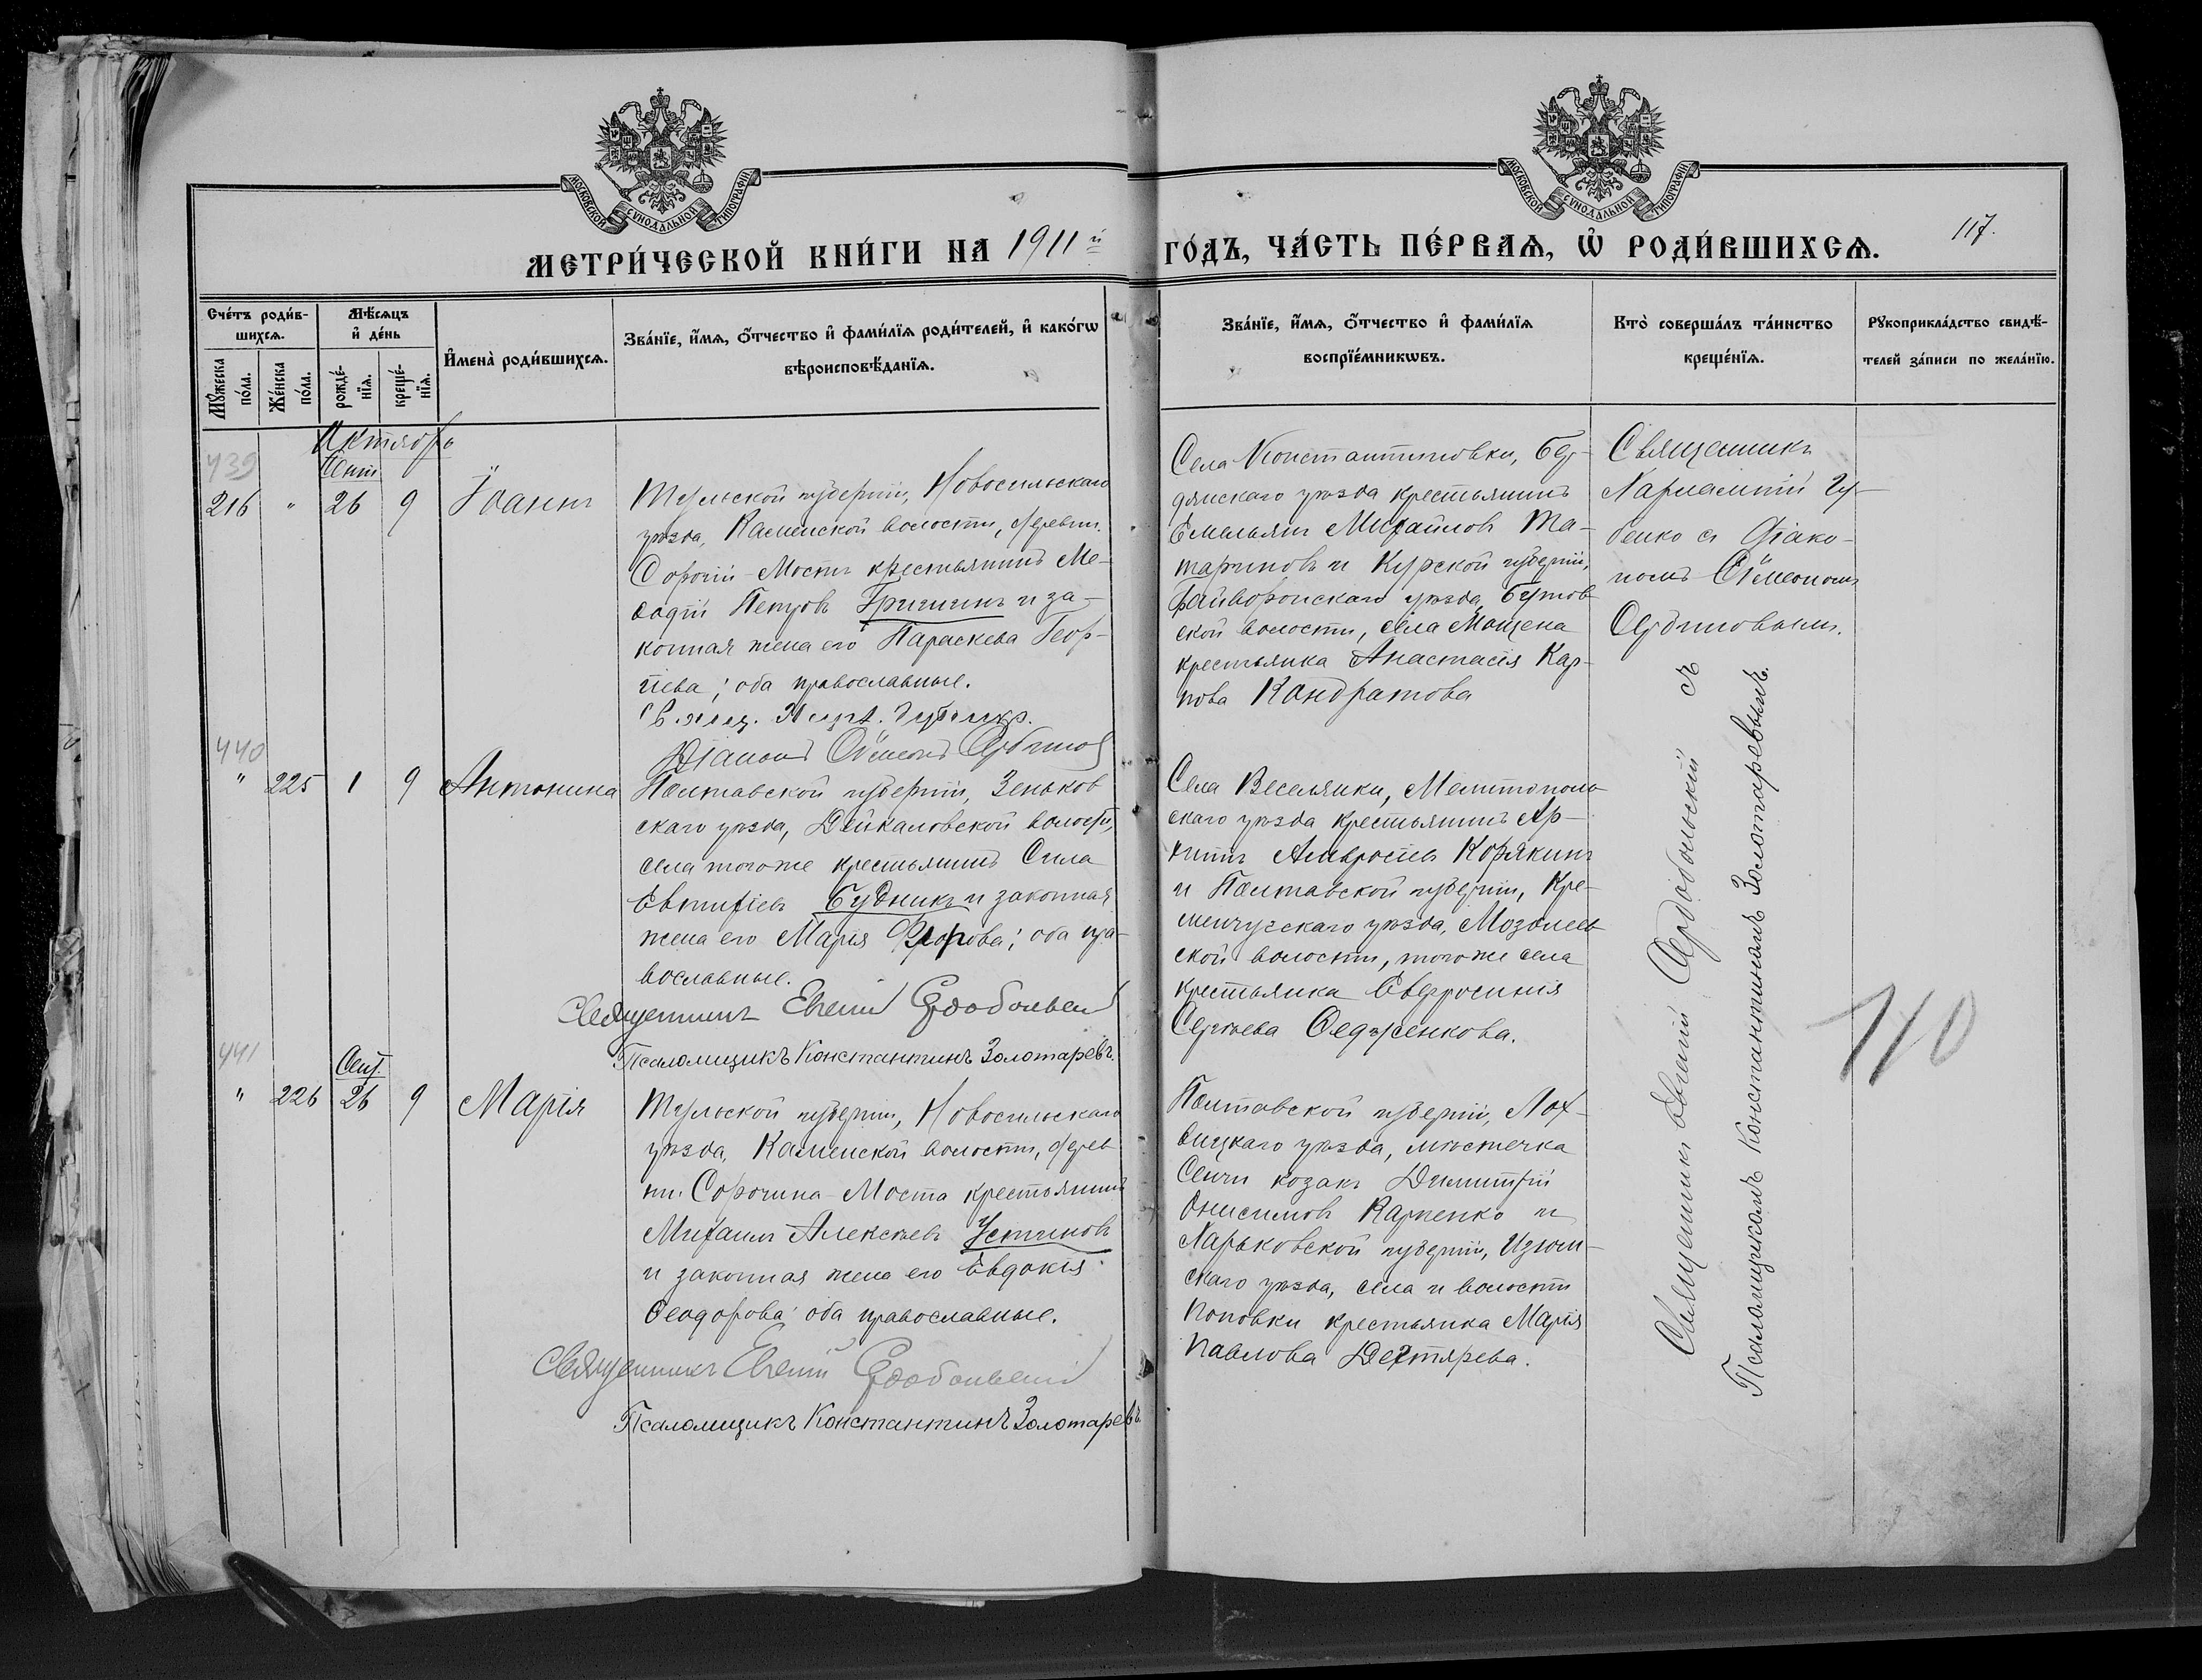 МОСКОВСКОЙ СѴНОДАЛЬНОЙ ТИПОГРАФІИ
МОСКОВСКОЙ СѴНОДАЛЬНОЙ ТИПОГРАФІИ
МЕТРИ́ЧЕСКОЙ КНИ́ГИ НА 1911й ГО́ДЪ, ЧА́СТЬ ПЕ́РВАѦ, Ѡ҆ РОДИ́ВШИХСѦ.
117.
Сче́тъ роди́в-
шихсѧ.
Мꙋ́жеска
по́ла.
Же́нска
по́ла.
Мѣ́сѧцъ
и҆ де́нь
рожде́-
нїѧ.
креще́-
нїѧ.
И҆мена̀ роди́вшихсѧ.
Зва́нїе, и҆́мѧ, ѻ҆́тчество и҆ фами́лїѧ роди́телей, и҆ како́гѡ
вѣроисповѣ́данїѧ.
Зва́нїе, и҆́мѧ, ѻ҆́тчество и҆ фами́лїѧ
воспрїе́мникѡвъ.
Кто̀ соверша́лъ та́инство
креще́нїѧ.
Рꙋкоприкла́дство свидѣ́-
телей за́писи по жела́нїю.
Октябрь
439
Сент.
216 " 26 9 Іоаннъ
Тульской губерніи, Новосильскаго
уѣзда, Каменской волости, деревни
Сорочій-Мостъ крестьянинъ Ме-
ѳодій Петровъ Гришинъ и за-
конная жена его Параскева Геор-
гіева; оба православные.
Свящ. Харл. Губенко.
Діаконъ Сѵмеонъ
Села Константиновки, Бер-
дянскаго уѣзда крестьянинъ
Емельянъ Михайловъ Та-
тариновъ и Курской губерніи,
Грайворонскаго уѣзда, Бутов-
ской волости, села Мощена
крестьянка Анастасія Кар-
пова Кандратова
Священникъ
Харлампій Гу-
бенко съ діако-
номъ Сѵмеономъ
440
" 225 1 9 Антонина
Полтавской губерніи, Зеньков
скаго уѣзда, Дейкаловской волости,
села тогоже крестьянинъ Сила
Евтихіевъ Будникъ и законная
жена его Марія оба пра-
вославные.
Священникъ Евгеній Сердобольскій
Псаломщикъ Константинъ Золотаревъ.
Села Веселянки, Мелитополь-
скаго уѣзда крестьянинъ Ар-
хипъ Амвросіевъ Корякинъ
и Полтавской губерніи, Кре-
менчугскаго уѣзда, Мозолеев-
ской волости, тогоже села
крестьянка Евфросинія
Сергѣева Ѳедоренкова.
441
Сент.
" 226 26 9 Марія
Тульской губерніи, Новосильскаго
уѣзда, Каменской волости, дерев
ни Сорочина-Моста крестьянинъ
Михаилъ Алексѣевъ Устиновъ
и законная жена его Евдокія
Ѳеодорова; оба православные.
Священникъ Евгеній Сердобольскій
Псаломщикъ Константинъ Золотаревъ.
Полтавской губерніи, Лох-
вицкаго уѣзда, мѣстечка
Сенчи козакъ Димитрій
Онисимовъ Карпенко и
Харьковской губерніи, Изюм-
скаго уѣзда, села и волости
Поповки крестьянка Марія
Павлова Дегтярева.
Священникъ Евгеній Сердобольскій съ
Псаломщикомъ Константиномъ Золотаревымъ.
110